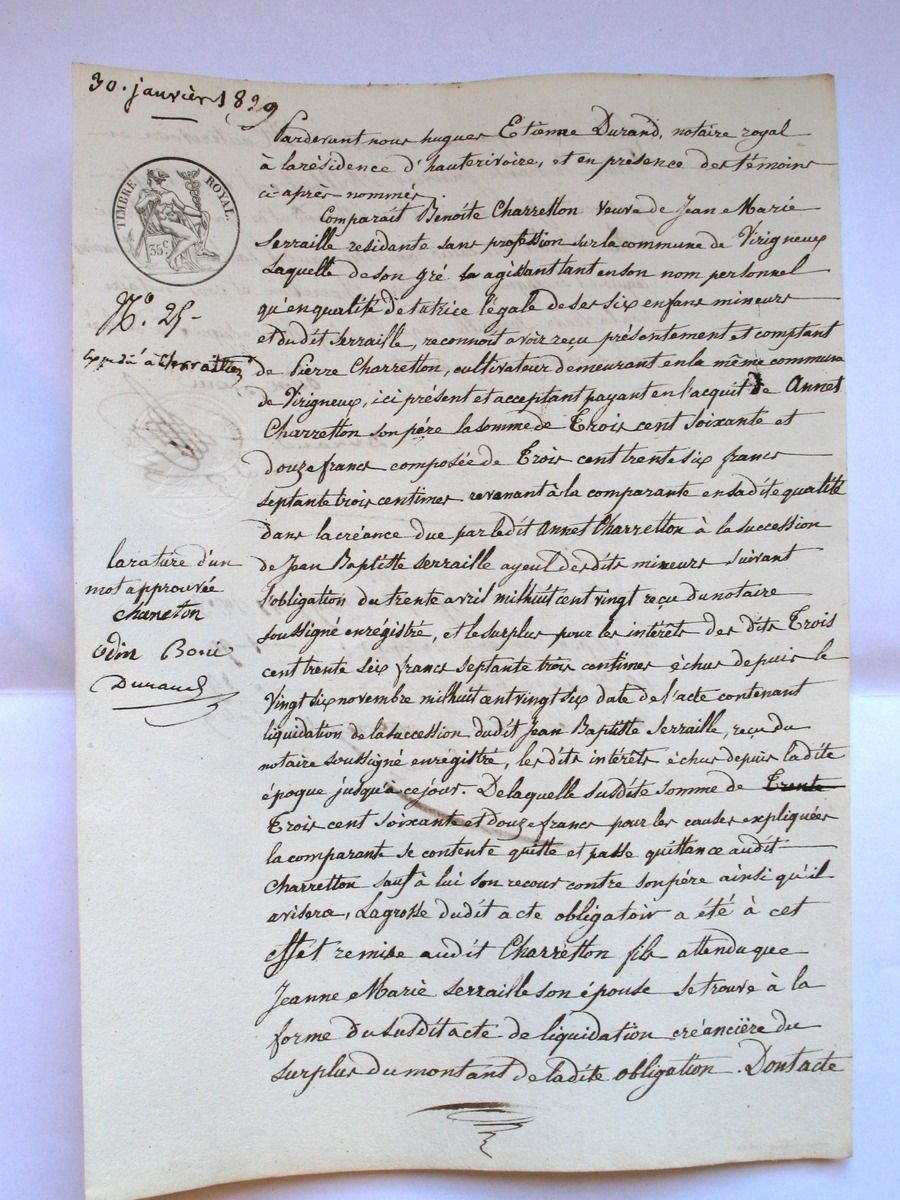 30. janvier 1829
TIMBRE ROYAL.
35 c.
N.º 25-
la rature d'un
mot approuvée
Odin
Durand
Pardevant nous hugues Etienne Durand, notaire royal
à la résidence d'hauterivoire, et en présence des témoins
ci après nommés
Comparait Benoite Charretton veuve de Jean Marie
Serraille residante sans profession sur la commune de Virigneux
Laquelle de son gré agissant tant en son nom personnel
qu'en qualité de tutrice légale de ses six enfans mineurs
et dudit Serraille, reconnoit avoir reçu présentement et comptant
de Pierre Charretton, cultivateur demeurant en la même commune
de Virigneux, ici présent et acceptant payant en l'acquit de Annet
Charretton son père la somme de Trois cent soixante et
douze francs composée de Trois cent trente six francs
septante trois centimes revenant à la comparante en sadite qualité
dans la créance due par ledit Annet Charretton à la succession
de Jean Baptiste Serraille ayeul desdits mineurs suivant
l'obligation du trente avril mil huit cent vingt reçu du notaire
soussigné enrégistré, et le surplus pour les intérêts des dits Trois
cent trente six francs septante trois centimes échus depuis le
Vingt six novembre mil huit cent vingt six date de l'acte contenant
liquidation de la succession dudit Jean Baptiste Serraille, reçu du
notaire soussigné enrégistré, les dits intérêts échus depuis ladite
époque jusqu'à ce jour. De laquelle susdite somme de Trente
Trois cent soixante et douze francs pour les causes expliquées
la comparante se contente quitte et passe quittance audit
Charretton sauf à lui son recour contre son père ainsi qu'il
avisera, La grosse dudit acte obligatoir a été à cet
effet remise audit Charretton fils attendu que
Jeanne Marie Serraille son épouse se trouve à la
forme du susdit acte de liquidation créancière du
surplus du montant de ladite obligation. Dont acte